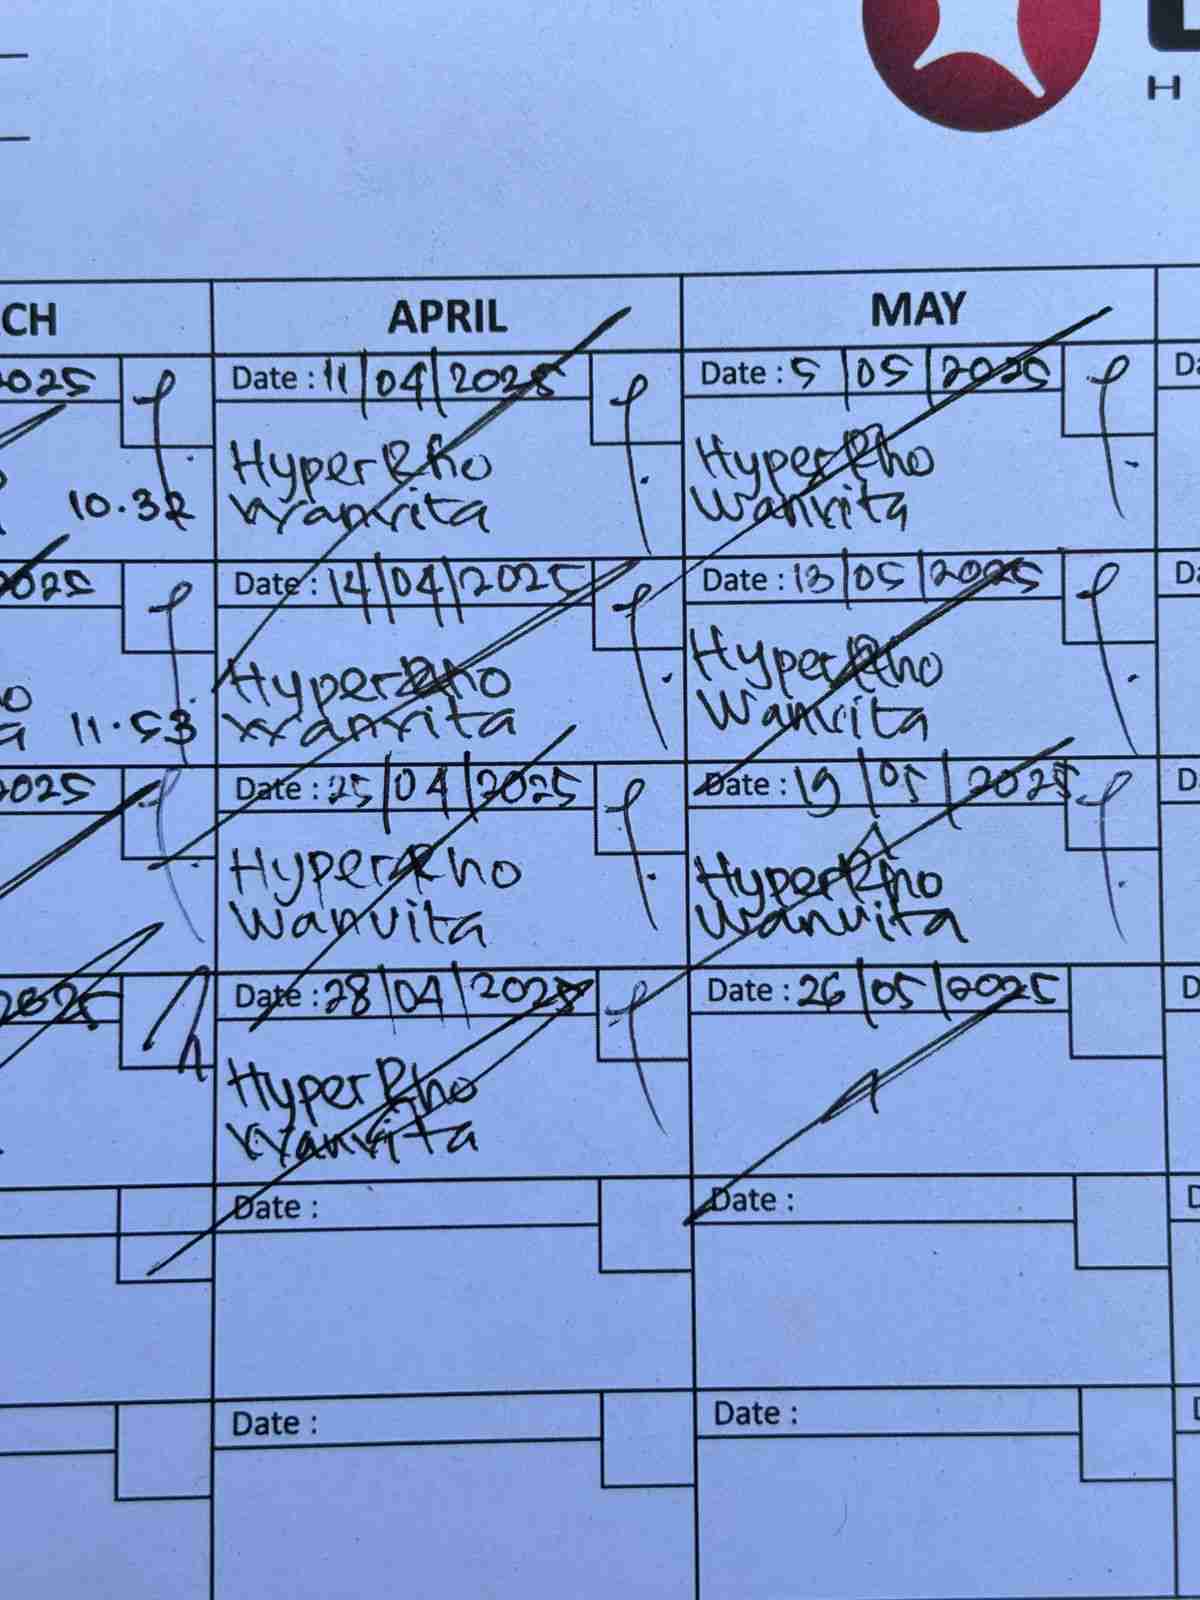 H
CH
APRIL
MAY
2025
Date : 11/04/2025
Date : 5/05/2025
HyperRho
Wanvita
HyperRho
Wanvita
10.32
2025
Date : 14/04/2025
Date : 13/05/2025
HyperRho
Wanvita
HyperRho
Wanvita
11.53
2025
Date : 25/04/2025
Date : 19/05/2025
HyperRho
Wanvita
HyperRho
Wanvita
2025
Date : 28/04/2025
Date : 26/05/2025
HyperRho
Wanvita
Date :
Date :
Date :
Date :